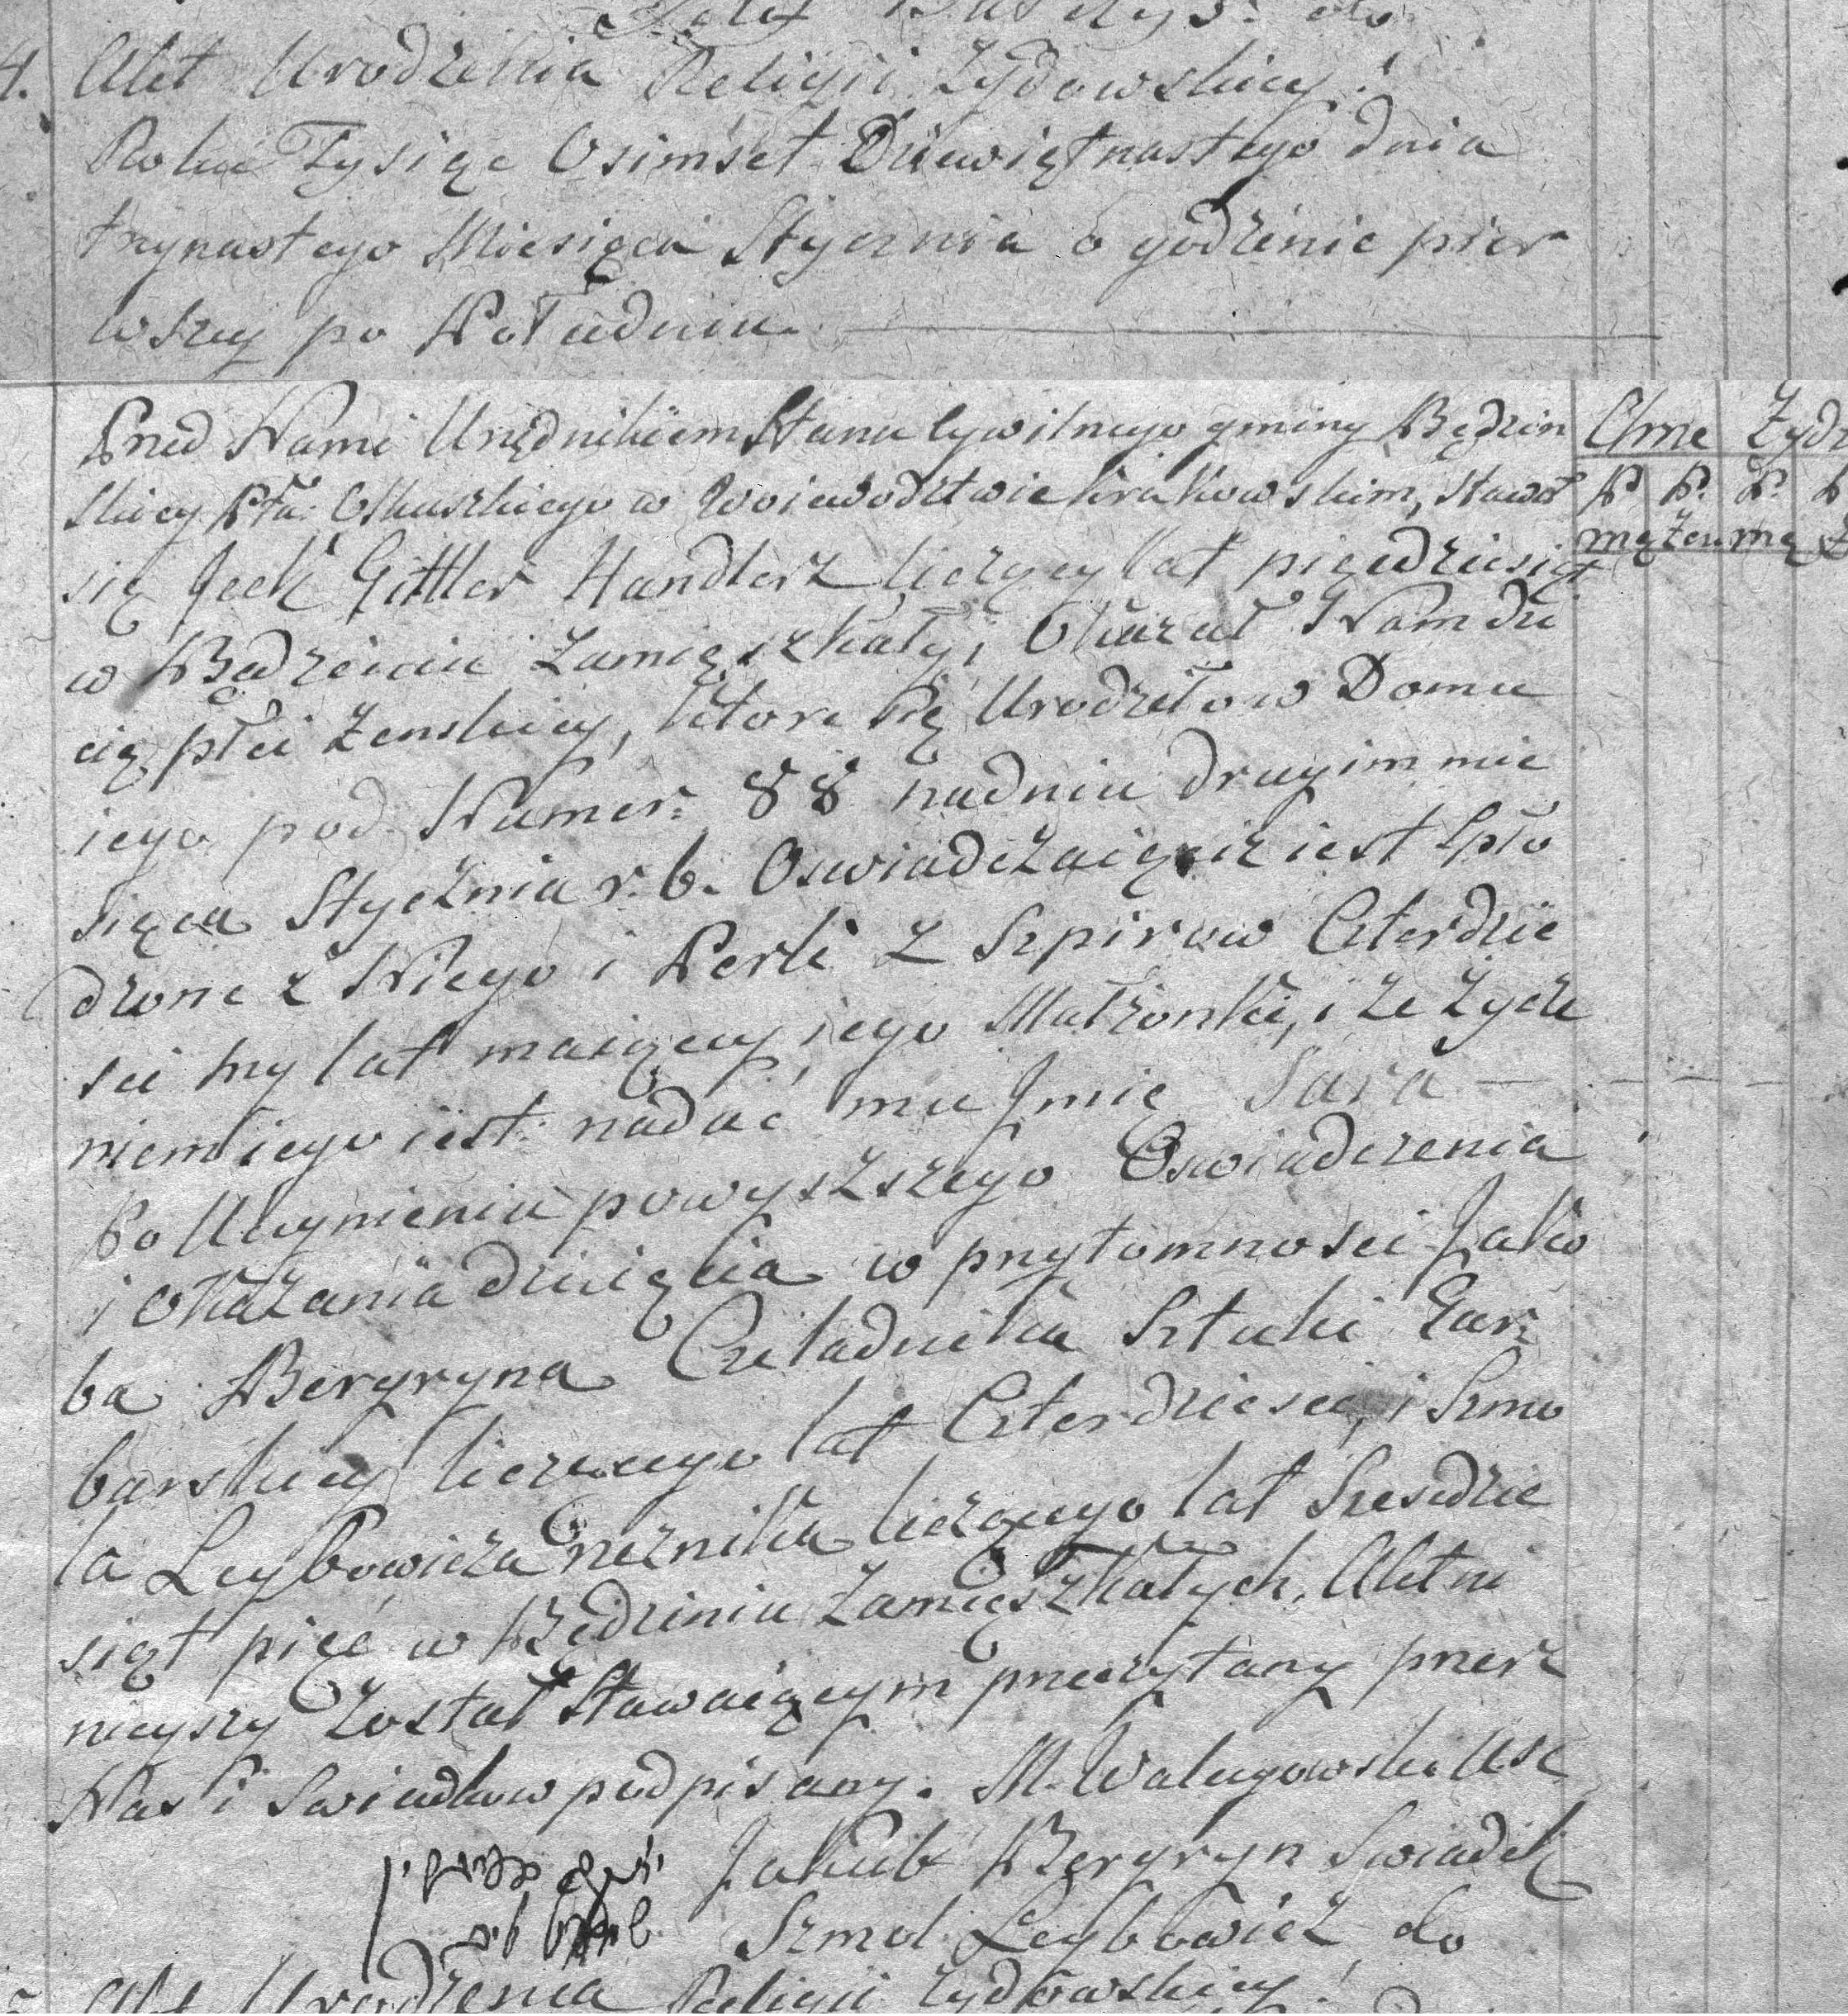 4. Akt Urodzenia Religii Zydowskiey!
Roku Tysiąc Osimset Dziewiętnastego dnia
trzynastego Miesiąca Stycznia o godzinie pier
wszey po Południu.
Przed Nami Urzędnikiem Stanu Cywilnego gminy Będzin
skiey Ptu: Olkuskiego w Woiewodztwie krakowskim, stawił
się Jcek Gittler Handlerz liczący lat pięcdziesiąt
w Będzeiniu zamięszkały, Okazał Nam dzi
cię płci Zenskiey, ktore Się Urodziło w Domu
iego pod Numer: 88 nadniu drugim mie
siąca Stycznia r. b. Oswiadczaiąc iz iest Spło
dzone z Niego i Perli z Szpirow Czterdzie
sci trzy lat maiącey, iego Małzonki, i ze życze
niem iego iest: nadać mu Jmię Sara
Po Uczynieniu powyszszego Oswiadczenia
i Okazania dziecięcia w przytomnosci Jako
ba Bergryna Czeladnika Sztuki Gar:
barskiey liczącego lat Czterdziesci, i Szmo
la Leybowicza rzeznika liczącego lat Szesdzie
siąt pięć w Będziniu zamięszkałych. Akt ni
nieyszy został Stawaiącym przeczytany przez
Nas i Swiadkow podpisany. M. Waligowski USC
Jakub Bergryn Swiadek
Szmol Leybowicz do
Akt Urodzenia Religii Zydowskiey!
Chrze Zydo
P. P. P. P
męzen mę